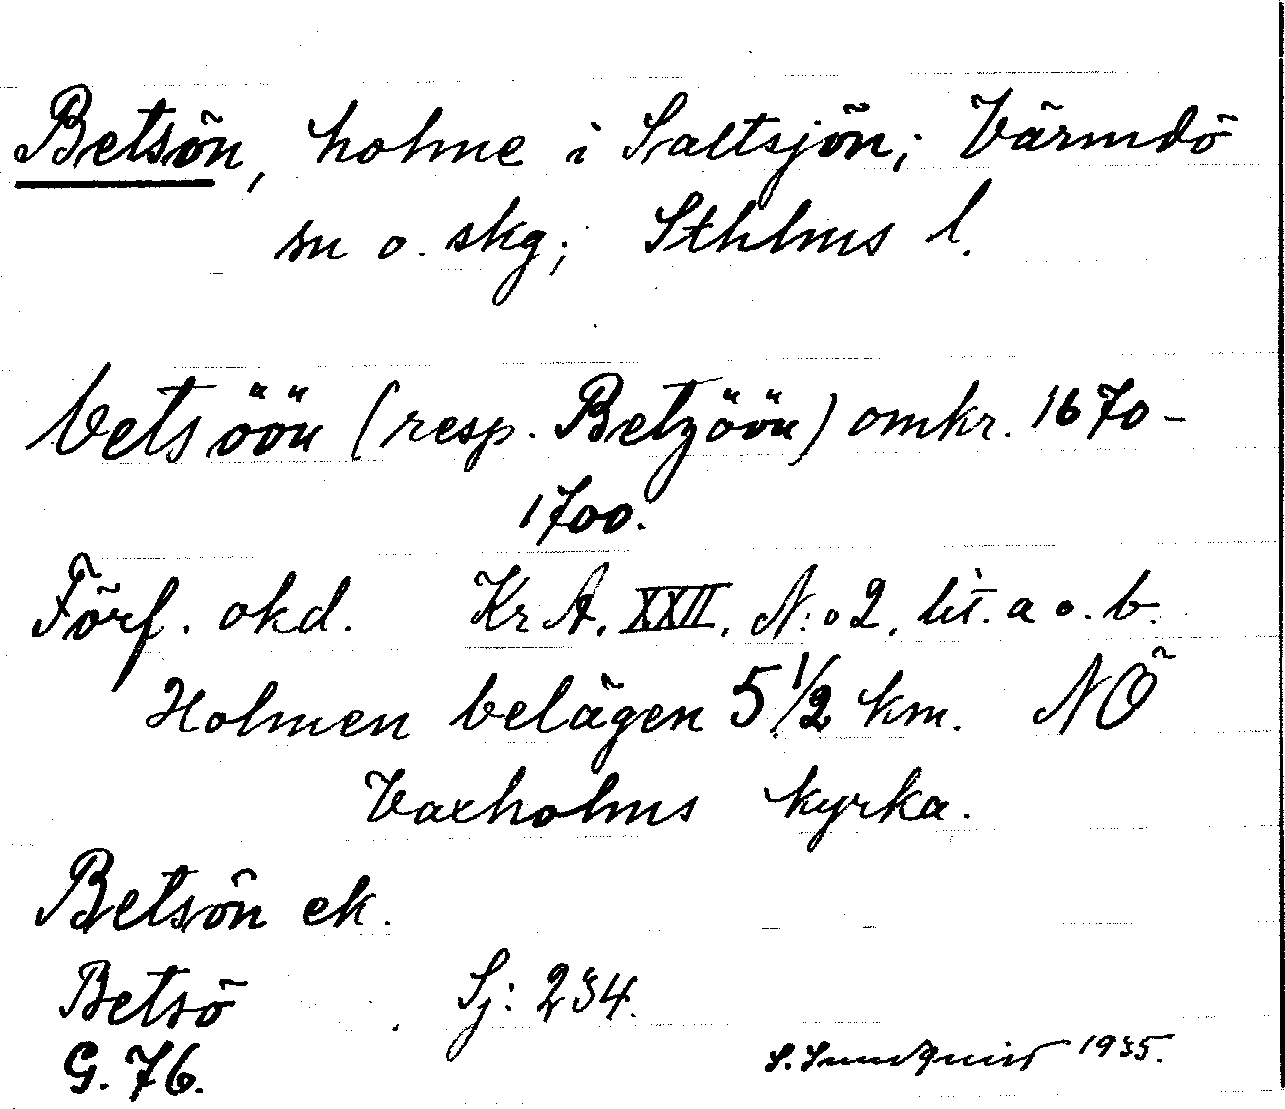 Betsön, holme i Saltsjön; Värmdö
sn o. skg; Sthlms l.
betsöön (resp. Betzöön) omkr. 1670-
1700.
Förf. okd. Kr A. XXII. N:o 2. lit. a o. b.
Holmen belägen 5 1/2 km. NÖ
Vaxholms kyrka.
Betsön ek.
Betsö Sj: 234.
G. 76.
S. Lundquist 1935.